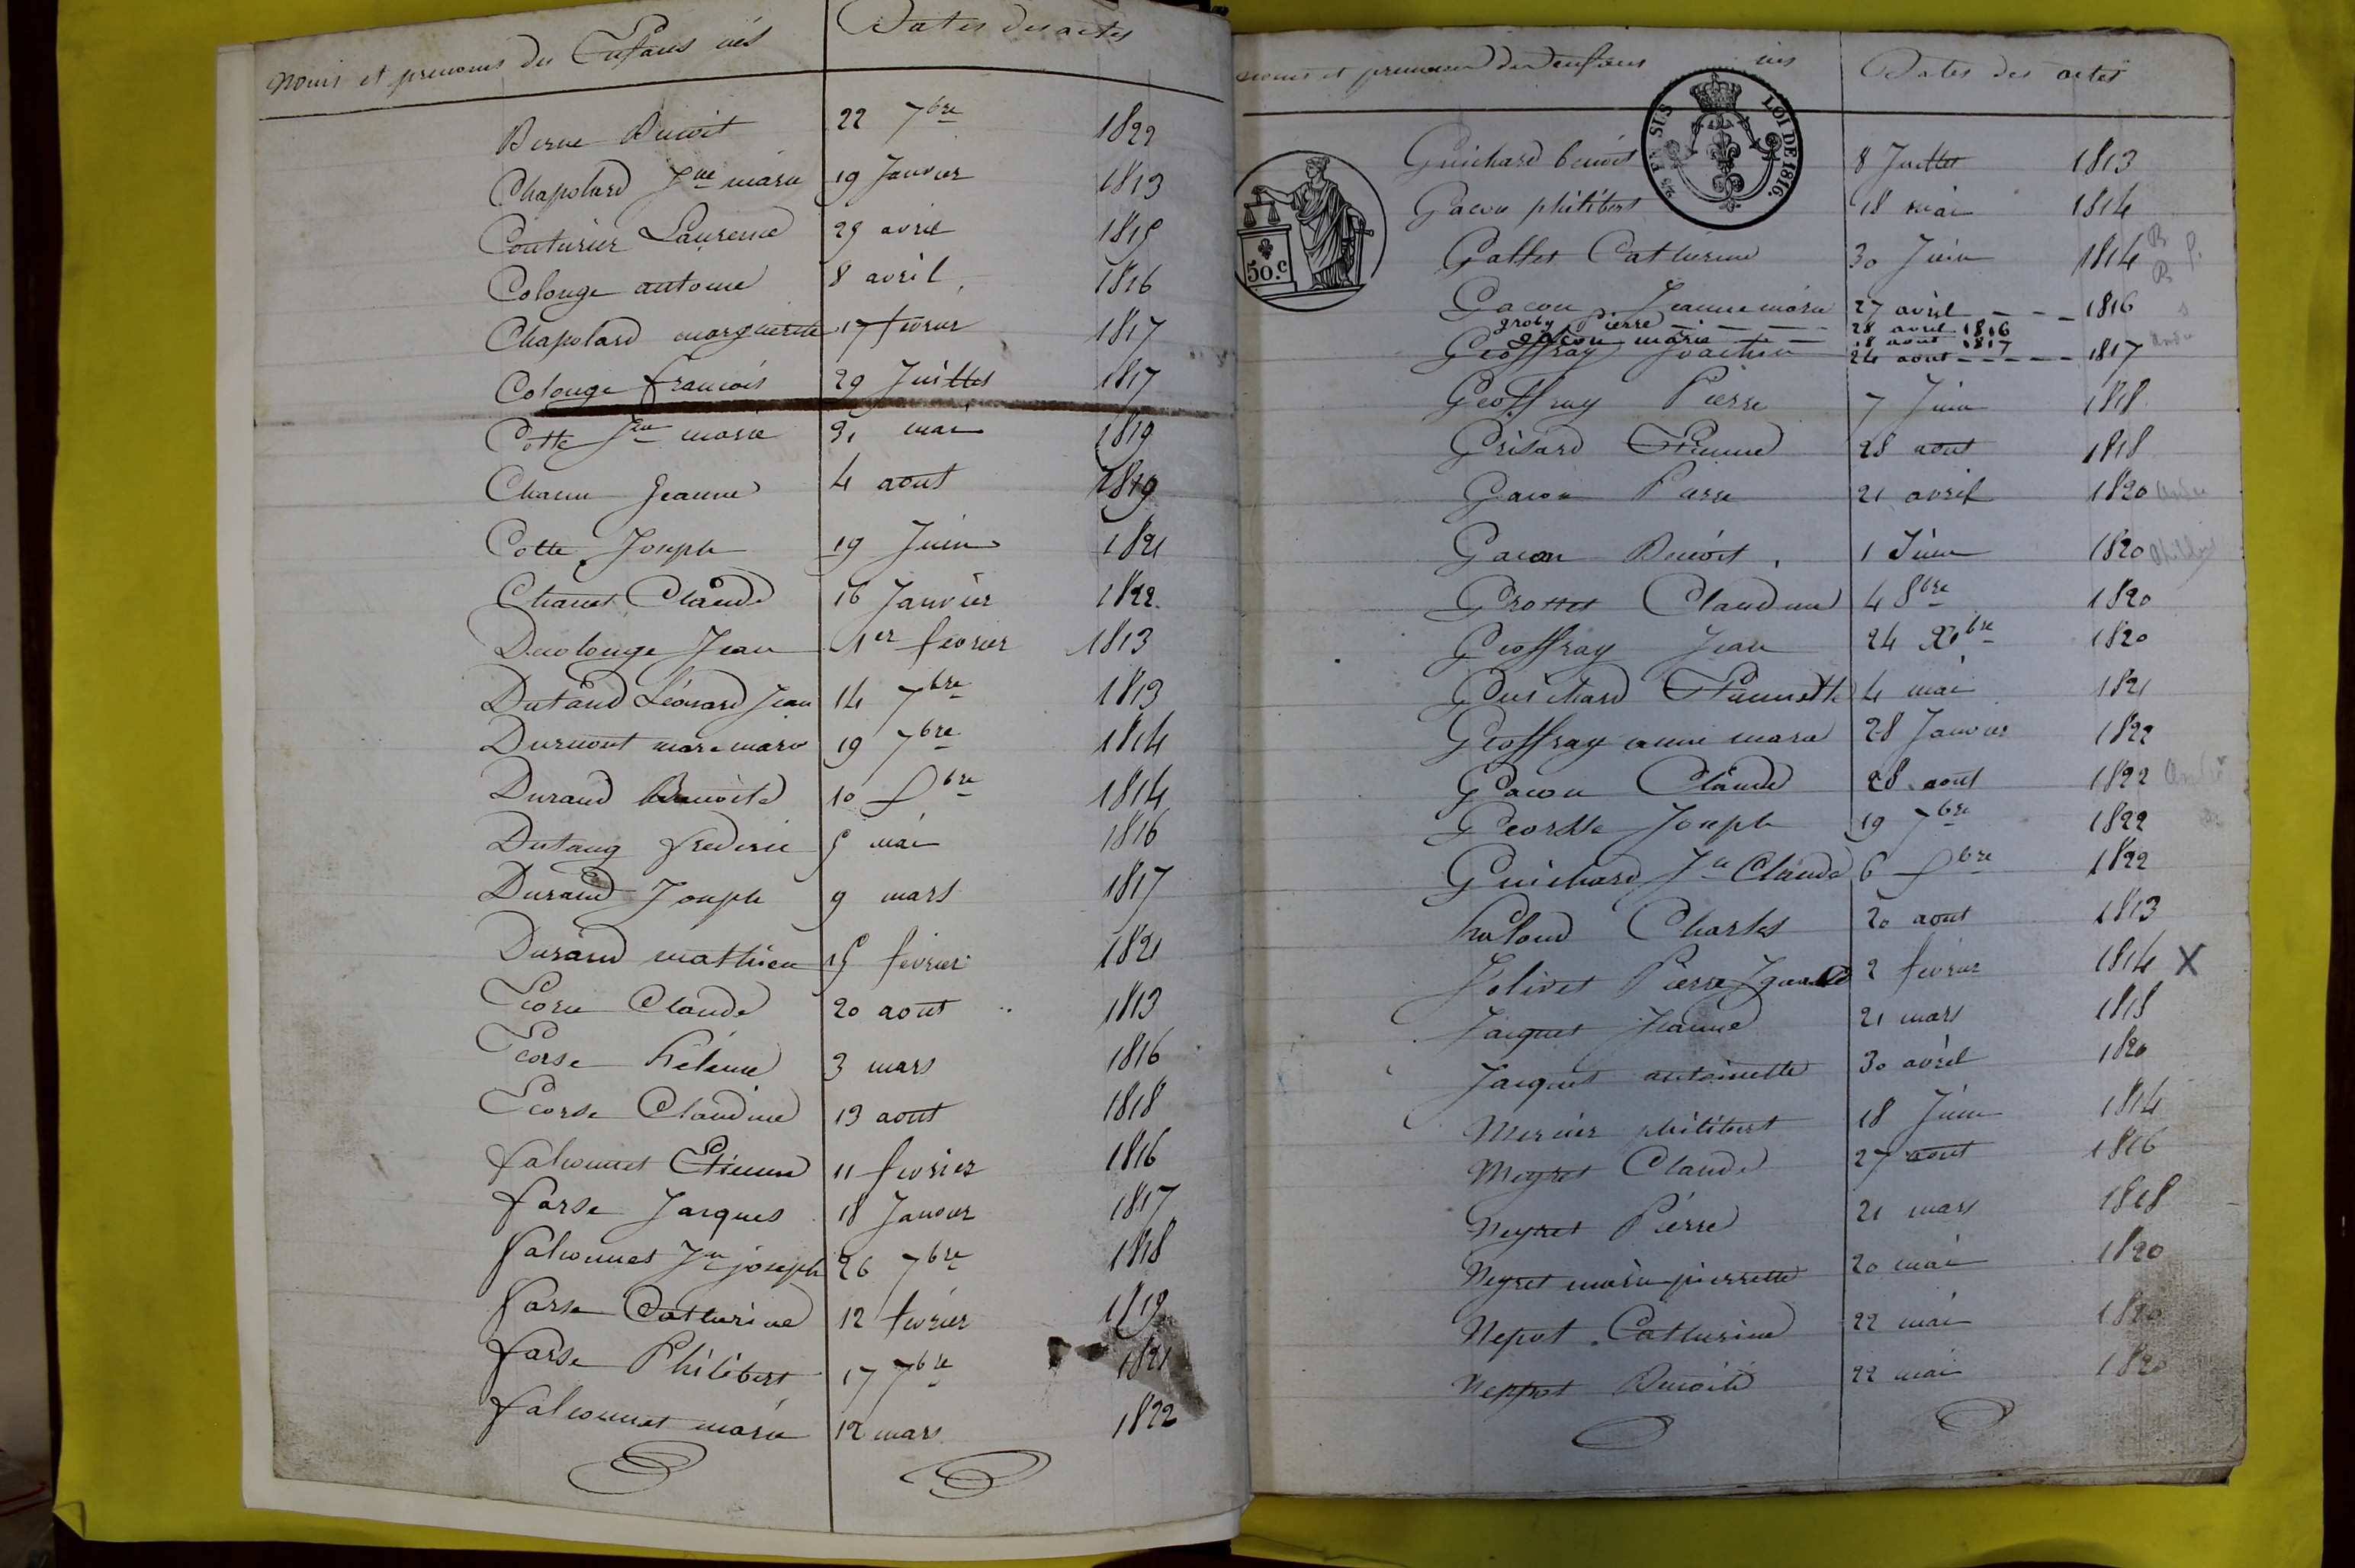 Noms et prenoms des Enfans nés Dates des actes
Berne Benoit 22 7bre 1822
Chapolard Jne marie 19 Janvier 1813
Couturier Laurence 29 avril 1815
Colonge antoine 8 avril 1816
Chapolard marguerite 17 fevrier 1817
Colonge francois 29 Juillet 1817
Cotte Jne marie 31 mai 1819
Chanu Jeanne 4 aout 1819
Cotte Joseph 19 Juin 1821
Chanet Claude 16 Janvier 1822
Ducolonge Jean 1er fevrier 1813
Dutand Léonard Jean 14 7bre 1813
Dumont marc marie 19 7bre 1814
Durand Benoite 10 9bre 1814
Dutang frederic 5 mai 1816
Durand Joseph 9 mars 1817
Durand mathieu 15 fevrier 1821
Ecorse Claude 20 aout 1813
Ecorse hélène 3 mars 1816
Ecorse Claudine 13 aout 1818
falconnet Etienne 11 fevrier 1816
farse Jacques 18 Janvier 1817
falconnet Jn joseph 26 7bre 1818
farse Catherine 12 fevrier 1819
farse Philibert 17 7bre 1821
falconnet marie 12 mars 1822
noms et prenoms des enfans nés Dates des actes
LOI DE 1816.
50.c
Guichard benoit 8 Juillet 1813
Gacon philibert 18 mai 1814
Gallet Catherine 30 Juin 1814
Gacon Jeanne marie 27 avril 1816
groby Pierre 28 avril 1816
gacon marie 18 aout 1817
Geoffray Joachim 24 aout 1817
Geoffray Pierre 7 Juin 1818
Grisard Etienne 28 aout 1818
Gacon Pierre 21 avril 1820
Gacon Benoit 1 Juin 1820
Grottet Claudine 4 8bre 1820
Geoffray Jean 24 Xbre 1820
Guichard Etiennette 4 mai 1821
Geoffray anne marie 28 Janvier 1822
Gacon Claude 28 aout 1822
Joseph 19 7bre 1822
Guichard Jn Claude 6 9bre 1822
Charles 20 aout 1813
Jolivet Pierre Ignace 2 fevrier 1814 X
Jacquet Jeanne 21 mars 1818
Jacquet antoinette 30 avril 1820
Mercier philibert 18 Juin 1814
Meyret Claude 27 aout 1816
Neyret Pierre 21 mars 1818
Neyret marie pierrette 20 mai 1820
Nepot Catherine 22 mai 1820
Neppot Benoite 22 mai 1820